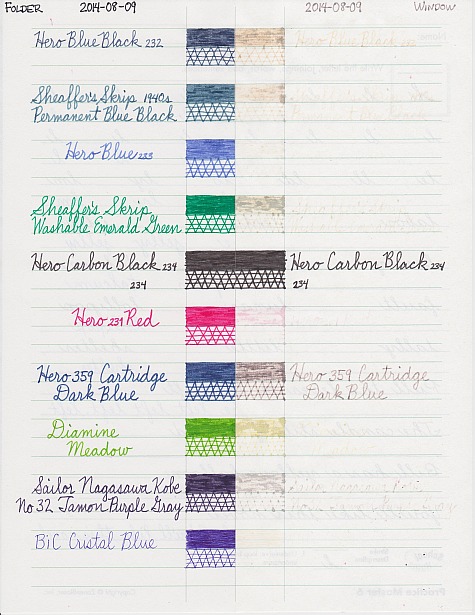 FOLDER 2014-08-09 2014-08-09 WINDOW
Hero Blue Black 232 Hero Blue Black 232
Sheaffer's Skrip 1940s
Permanent Blue Black
Hero Blue 233
Sheaffer's Skrip
Washable Emerald Green
Hero Carbon Black 234 Hero Carbon Black 234
234 234
Hero 231 Red
Hero 359 Cartridge Hero 359 Cartridge
Dark Blue Dark Blue
Diamine
Meadow
Sailor Nagasawa Kobe
No 32 Tamon Purple Gray
BiC Cristal Blue